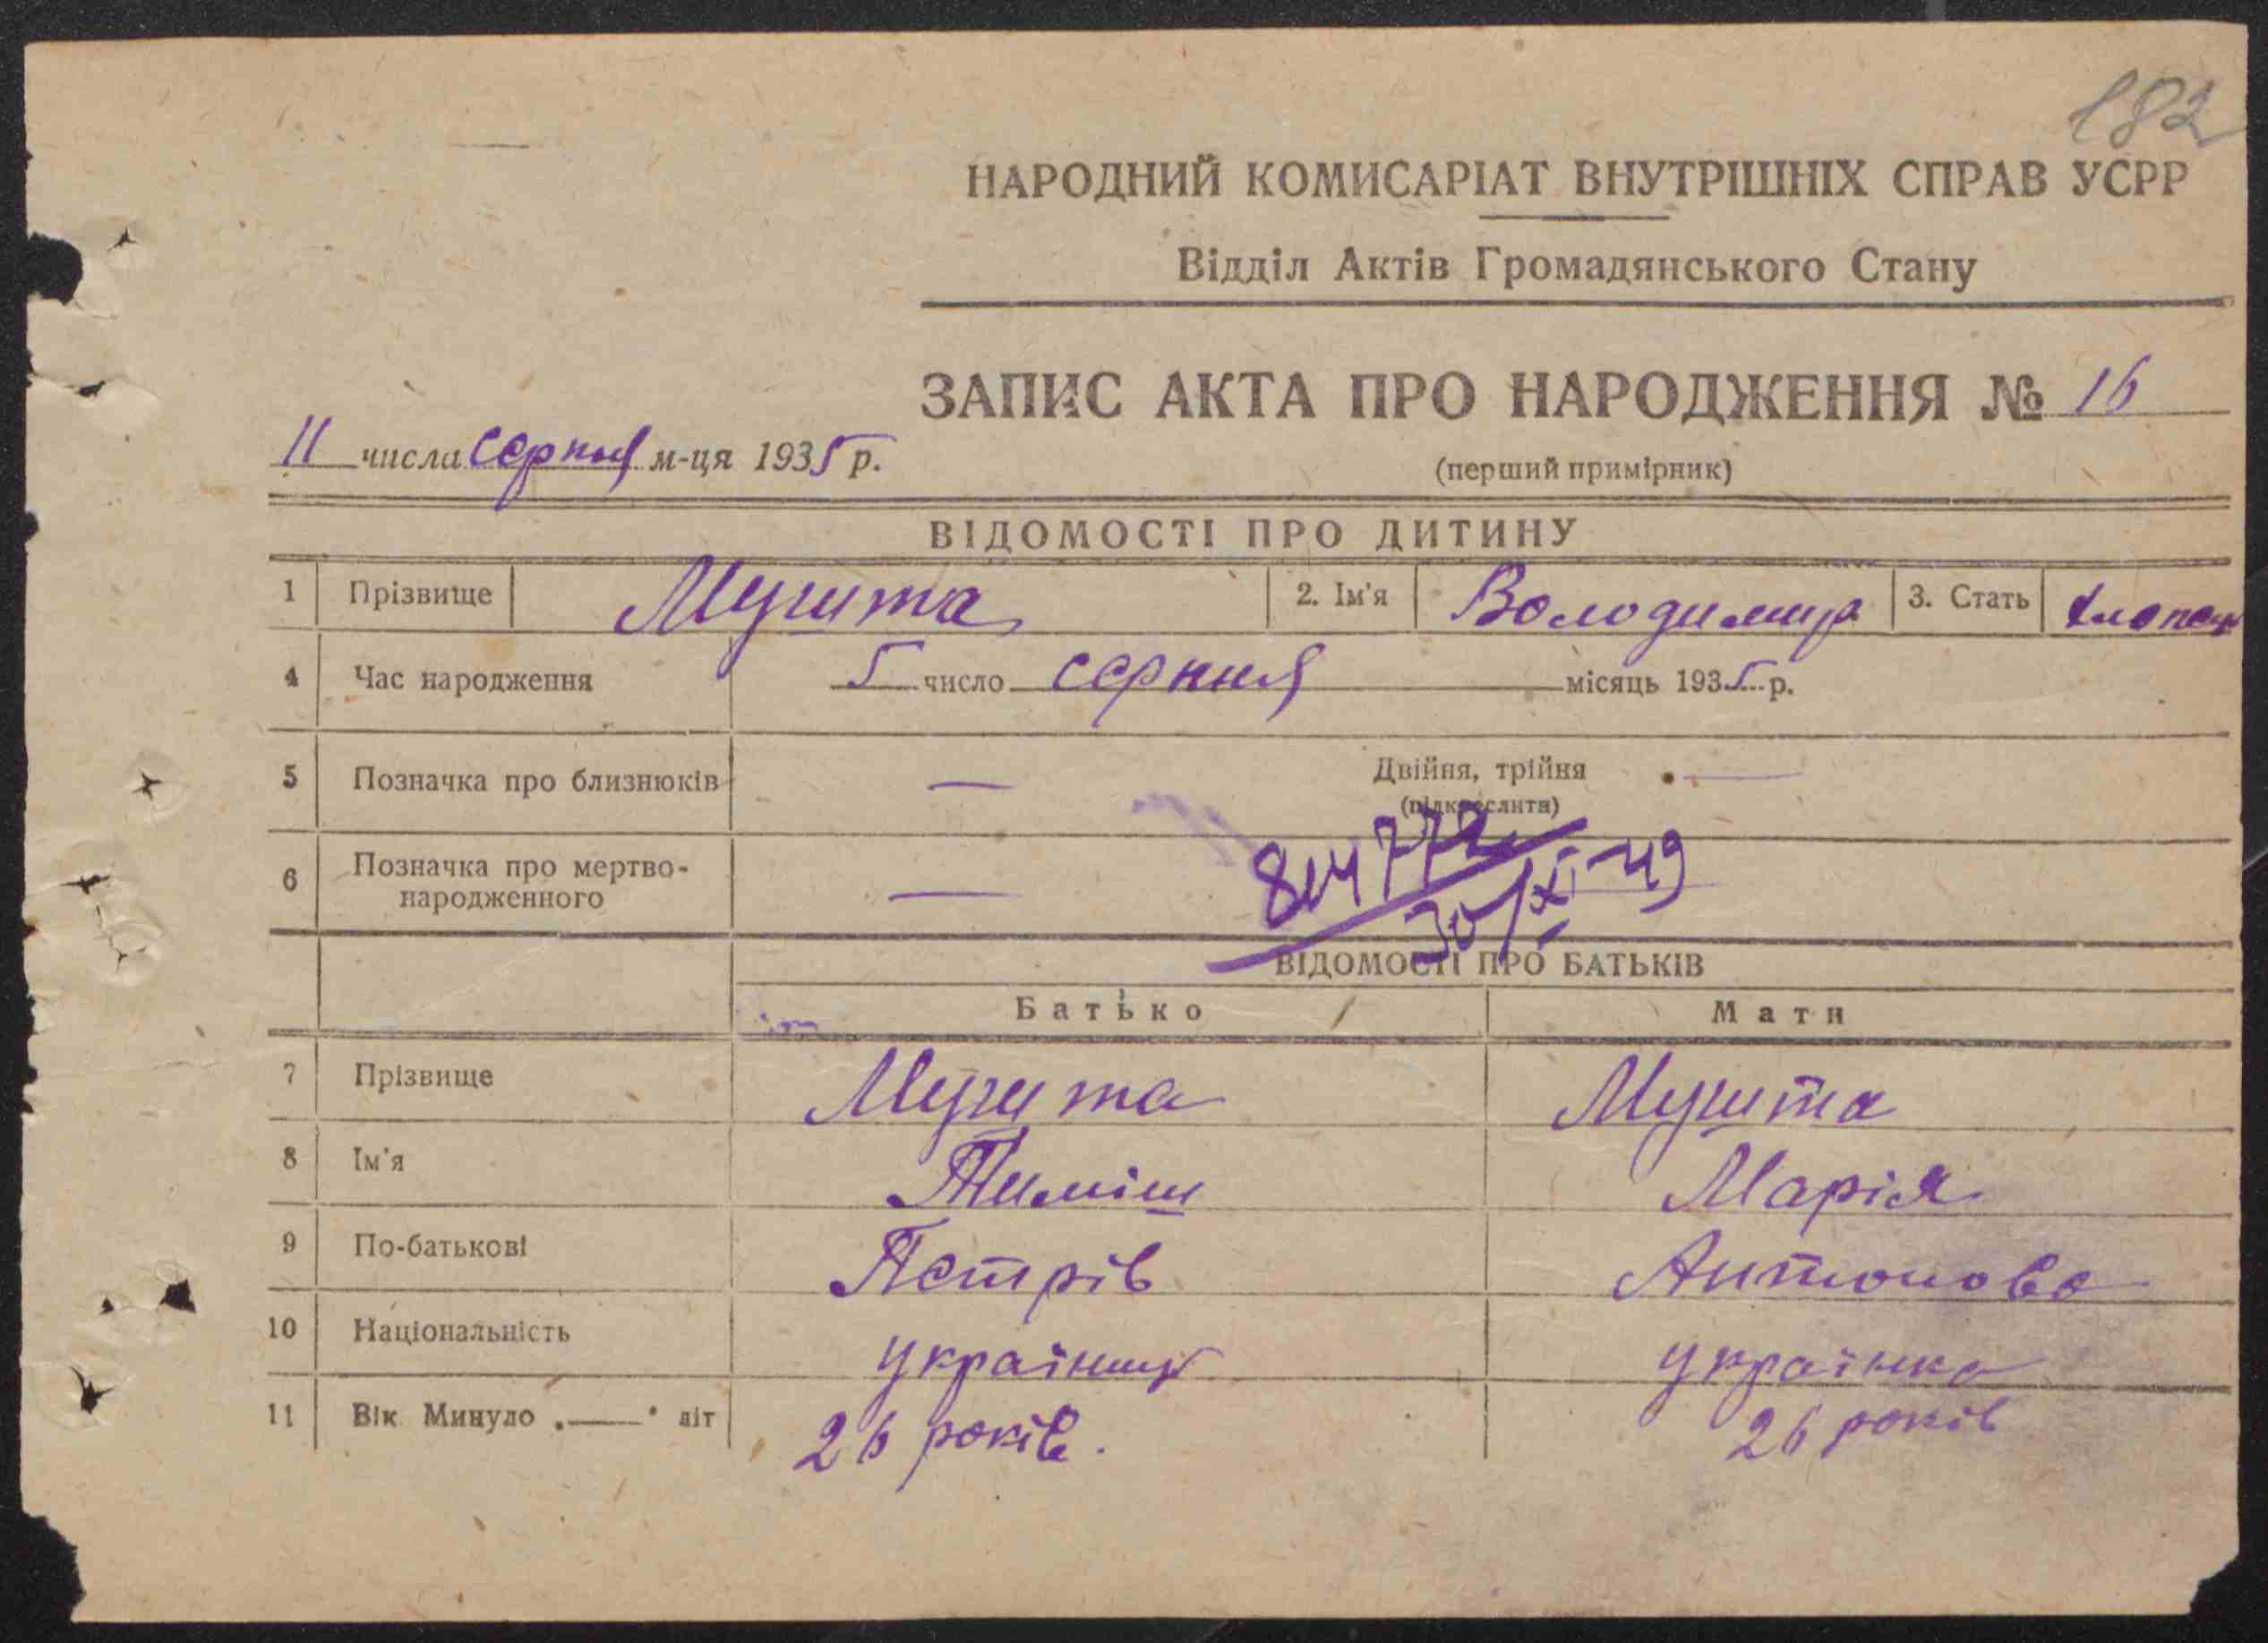 182
НАРОДНИЙ КОМИСАРІАТ ВНУТРІШНІХ СПРАВ УСРР
Відділ Актів Громадянського Стану
ЗАПИС АКТА ПРО НАРОДЖЕННЯ № 16
11 числа серпня м-ця 1935 р.
(перший примірник)
ВІДОМОСТІ ПРО ДИТИНУ
1 Прізвище Мушта 2. Ім'я Володимир 3. Стать хлопець
4 Час народження 5 число серпня місяць 1935 р.
5 Позначка про близнюків — Двійня, трійня —
(підкреслити)
6 Позначка про мертво-
народженного —
30/XI-49
ВІДОМОСТІ ПРО БАТЬКІВ
Батько Мати
7 Прізвище Мушта Мушта
8 Ім'я Тиміш Марія
9 По-батькові Петрів Антонова
10 Національність українець українка
11 Вік Минуло „—“ літ 26 років. 26 років